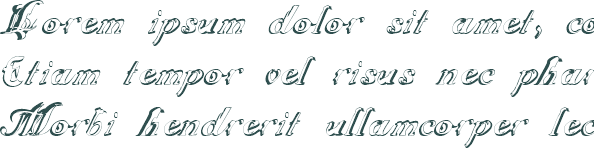 Lorem ipsum dolor sit amet, co
Etiam tempor vel risus nec phar
Morbi hendrerit ullamcorper lec